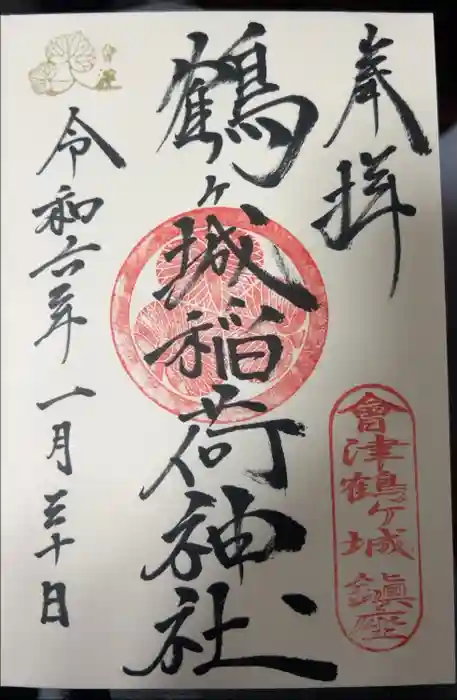 奉拝
會津鶴ヶ城鎮座
鶴ヶ城稲荷神社
令和六年一月三十日
會津